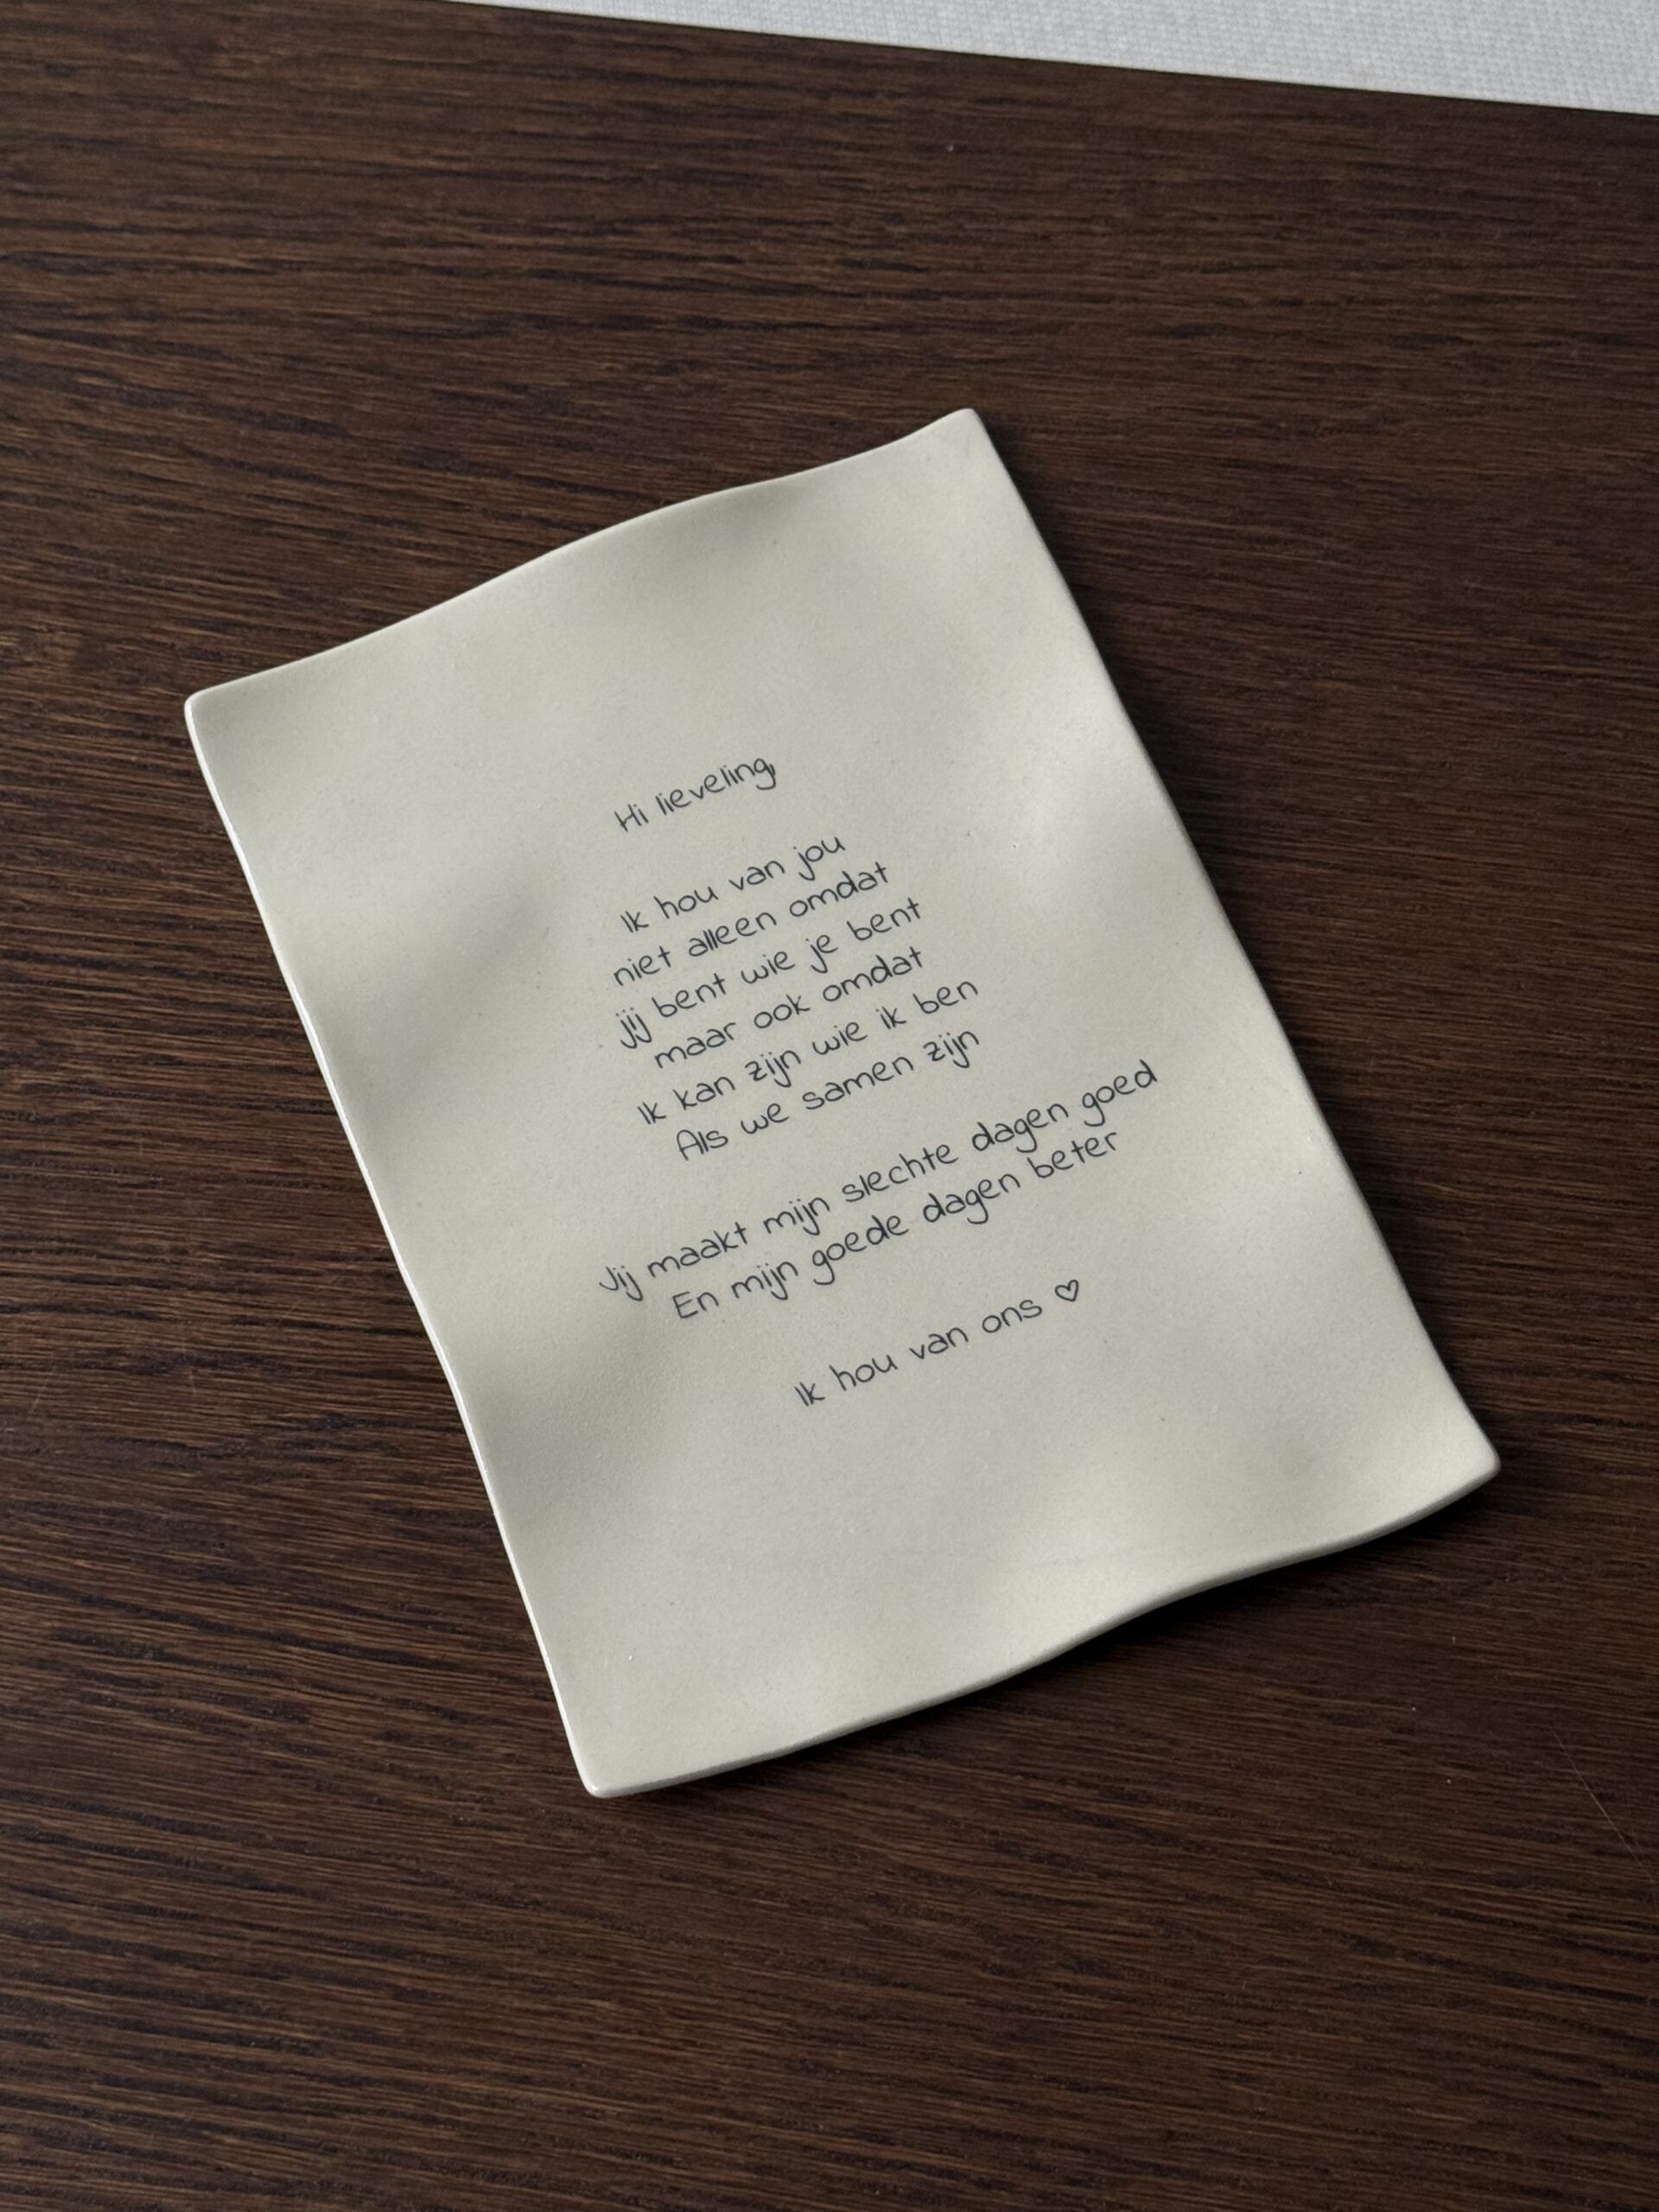 Hi lieveling,
Ik hou van jou
niet alleen omdat
jij bent wie je bent
maar ook omdat
Ik kan zijn wie ik ben
Als we samen zijn
Jij maakt mijn slechte dagen goed
En mijn goede dagen beter
Ik hou van ons ♡